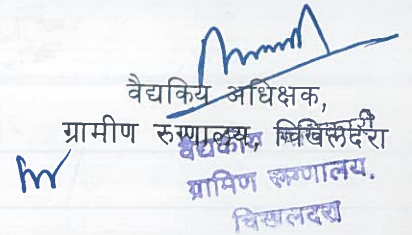 वैद्यकिय अधिक्षक,
ग्रामीण रुग्णालय, चिखलदरा
ग्रामिण रुग्णालय.
चिखलदरा